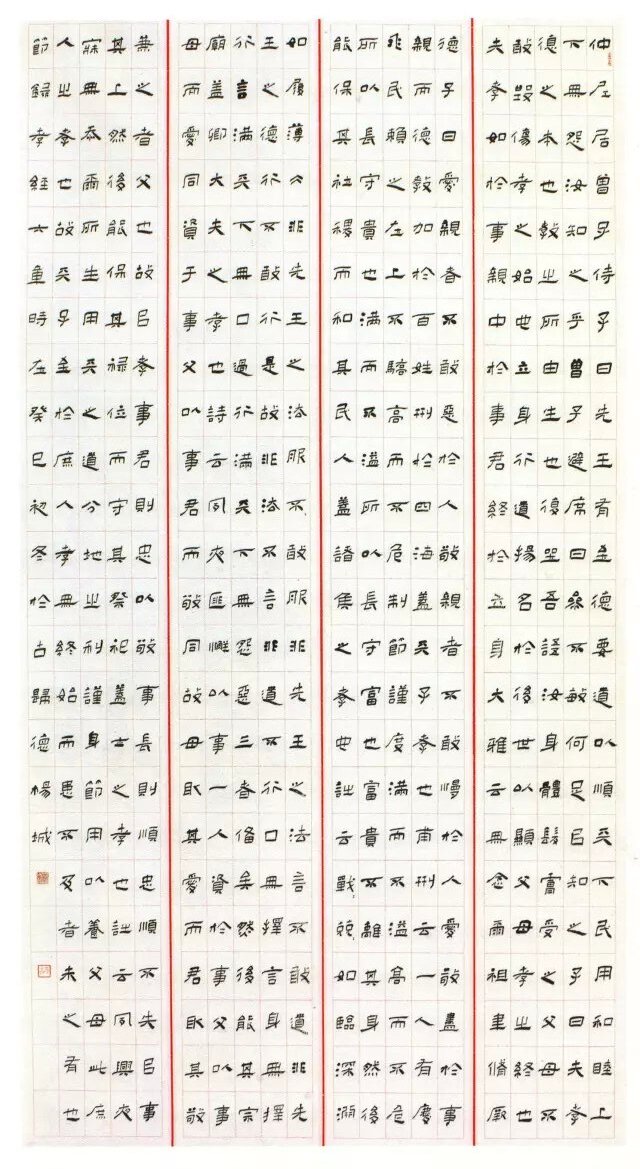 仲尼居曾子侍子曰先王有至德要道以順天下民用和睦上
下無怨汝知之乎曾子避席曰參不敏何足以知之子曰夫孝
德之本也教之所由生也復坐吾語汝身體髮膚受之父母不
敢毀傷孝之始也立身行道揚名於後世以顯父母孝之終也
夫孝始於事親中於事君終於立身大雅云無念爾祖聿脩厥
德子曰愛親者不敢惡於人敬親者不敢慢於人愛敬盡於事
親而德教加於百姓刑於四海蓋天子孝也甫刑云一人有慶
兆民賴之在上不驕高而不危制節謹度滿而不溢高而不危
所以長守貴也滿而不溢所以長守富也富貴不離其身然後
能保其社稷而和其民人蓋諸侯之孝也詩云戰兢如臨深淵
如履薄冰非先王之法服不敢服非先王之法言不敢道非先
王之德行不敢行是故非法不言非道不行口無擇言身無擇
行言滿天下無口過行滿天下無怨惡三者備矣然後能其宗
廟蓋卿大夫之孝也詩云夙夜匪懈以事一人資於事父以事
母而愛同資于事父以事君而敬同故母取其愛而君取其敬
兼之者父也故以孝事君則忠以敬事長則順忠順不失以事
其上然後能保其祿位而守其祭祀蓋士之孝也詩云夙興夜
寐無忝爾所生用天之道分地之利謹身節用以養父母此庶
人之孝也故天子至於庶人孝無終始而患不及者未之有也
節錄孝經六章時在癸巳初冬於古歸德楊城